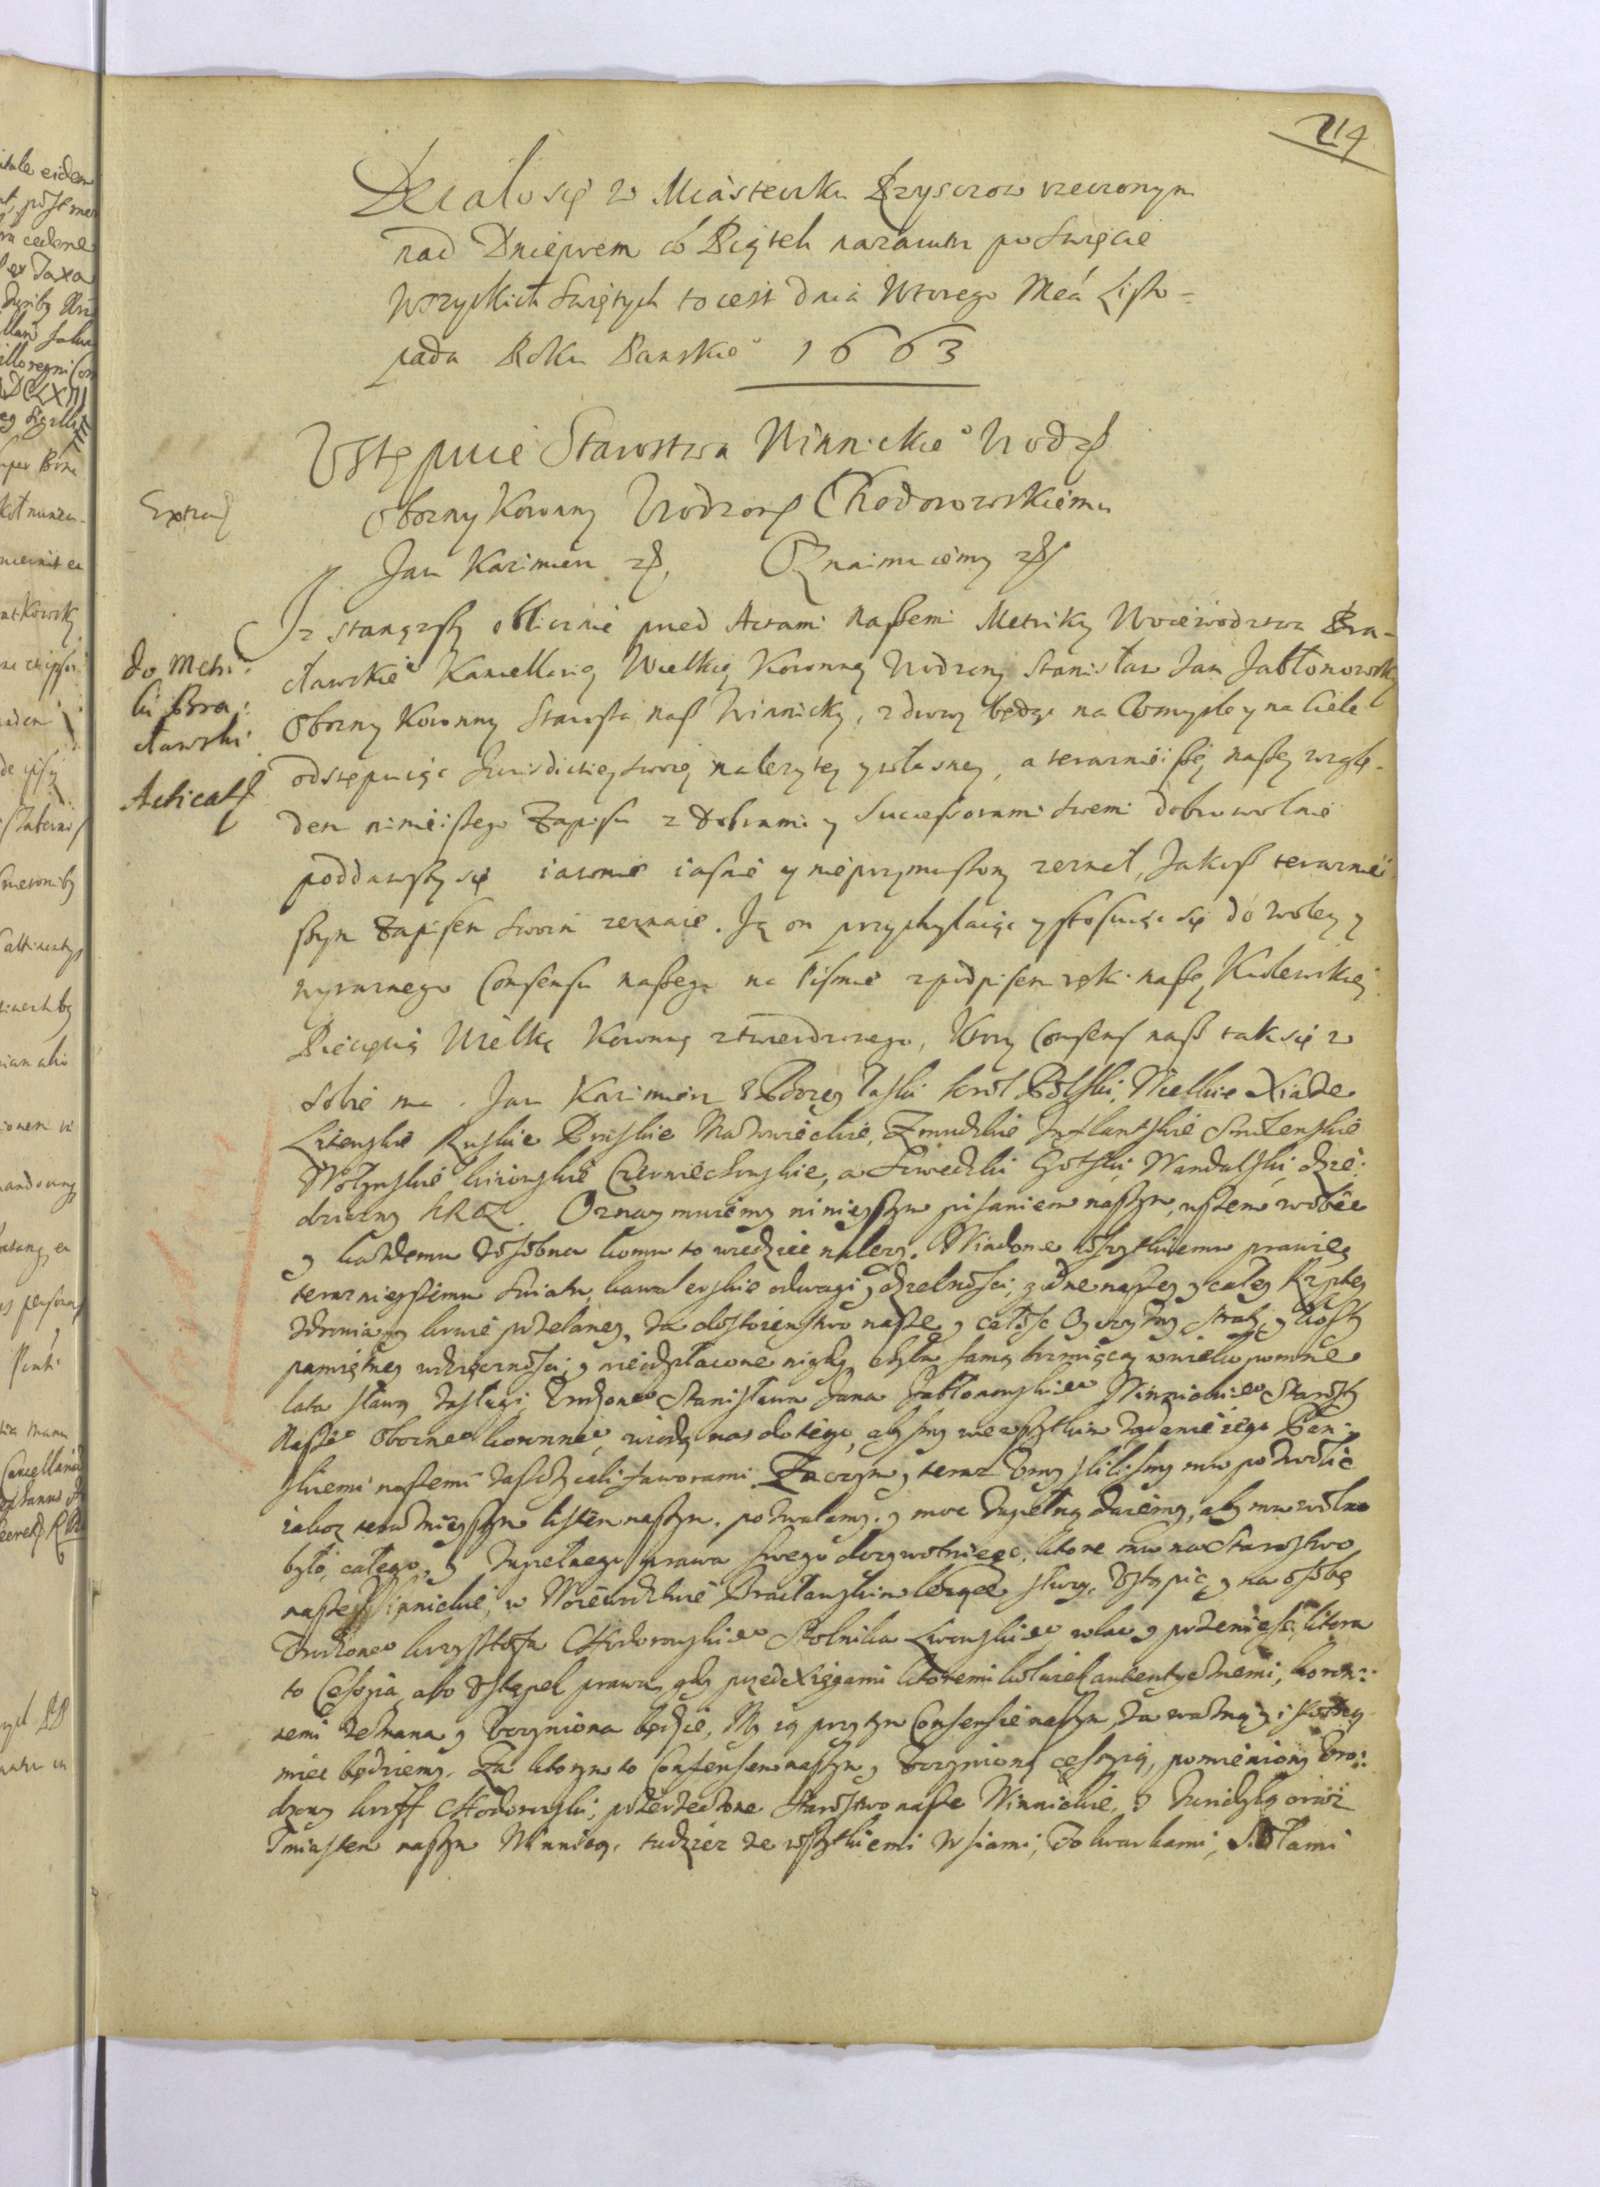 214
Działo się w Miasteczku Rzyszczow rzeczonym
nad Dnieprem w Piątek nazaiutrz po Swięcie
Wszystkich Swiętych to iest dnia Wtorego Mca Listo-
pada Roku Panskieo 1663
Ustępuie Starostwa Winnickieo Urodz
Obozny Koronny Urodzonem Chodorowskiemu
Jan Kazimierz etc. Oznaimuiemy etc.
Do Metri:
ki Bra:
cławski
Iz stanąwszy oblicznie przed Actami naszemi Metriky Woiewodztwa Bra-
cławskieo Kancellariey Wielkiey Koronney Urodzony Stanisław Jan Jabłonowsky
Obozny Koronny Starosta nasz Winnicky, zdrowy będąc na Umysle y na Ciele
odstępuiąc Jurisdictiey swoiey należytey y własney, a teraznieiszey naszey wzglę-
dem ninieiszego Zapisu z dobrami y Successorami swemi dobrowolnie
poddawszy się iawnie iasnie y nieprzymuszony zeznał, Jakosz teraznie
szym Zapisem swoim zeznaie. Iz on przychylaiąc y stosuiąc się do woley y
wyraznego Consensu naszego na Pismie z podpisem ręki naszey Krolewskiey
Pieczęcią Wielką Koronną ztwierdzonego, Ktory Consens nasz tak się w
sobie ma. Jan Kazimierz z Bożey łaski krol Polski, Wielkie Xiąże
Litewskie Ruskie Pruskie Mazowieckie, Zmudzkie Inflantskie Smolenskie
Wołynskie kiiowskie Czerniechowskie, a Szwedzki Gotski, Wandalski dzie:
dziczny krol. Oznaymuiemy ninieyszym pisaniem naszym, wszem wobec
y każdemu zosobna komu to wiedzieć należy. Wiadome wszystkiemu prawie
teraznieyszemu swiatu kawalerskie odwagi y dzielności, z dne naszey y całey Rzptey
zdrowia y krwie przelaney, za dostoienstwo nasze y całość Oyczyzny straty y koszty
pamiętney wdzięczności, y nieodpłacone nigdy, chyba samą brzmiącą w nieliu pomne
lata sławą zasługi Urodzoneo Stanisława Jana Jabłonowskieo Winnickieo Starosty
Naszeo Oboznego koronneo, wiodą nas do tego, abysmy we wszytkim żądanie iego Pan-
skiemi naszemi zaszczycali faworami. Zaczym y teraz Umyslilismy mu pozwolić
iakoz teraznieyszym listem naszym, pozwalamy, y moc zupełną daiemy, aby mu wolno
było, całego, y zupełnego prawa swego dożywotniego, ktore mu na Starostwo
nasze Winnickie, w Woiewodztwie Bracławskim leżące służy, Ustąpić, y na osobę
Urodzoneo krzysztofa Chodorowskieo Stolnika Lwowskieo wlac y przeniesc, ktora
to Cessyia abo Ustąpek prawa, gdy przed Xięgami ktoremi kolwiek autentycznemi, koron:
nemi zeznana y Uczyniona będzie, My ią przy tym Consensie naszym, za ważną y istotną
miec będziemy. Za ktorym to Consensem naszym y Uczynioną cessyią, pomieniony Uro:
dzony krzff Chodorowski, przerzeczone Starostwo nasze Winnickie, z Jurisdyką oraz
Zmiastem naszym Winnicą, tudziez ze wszytkiemi Wsiami, Folwarkami, Siołami